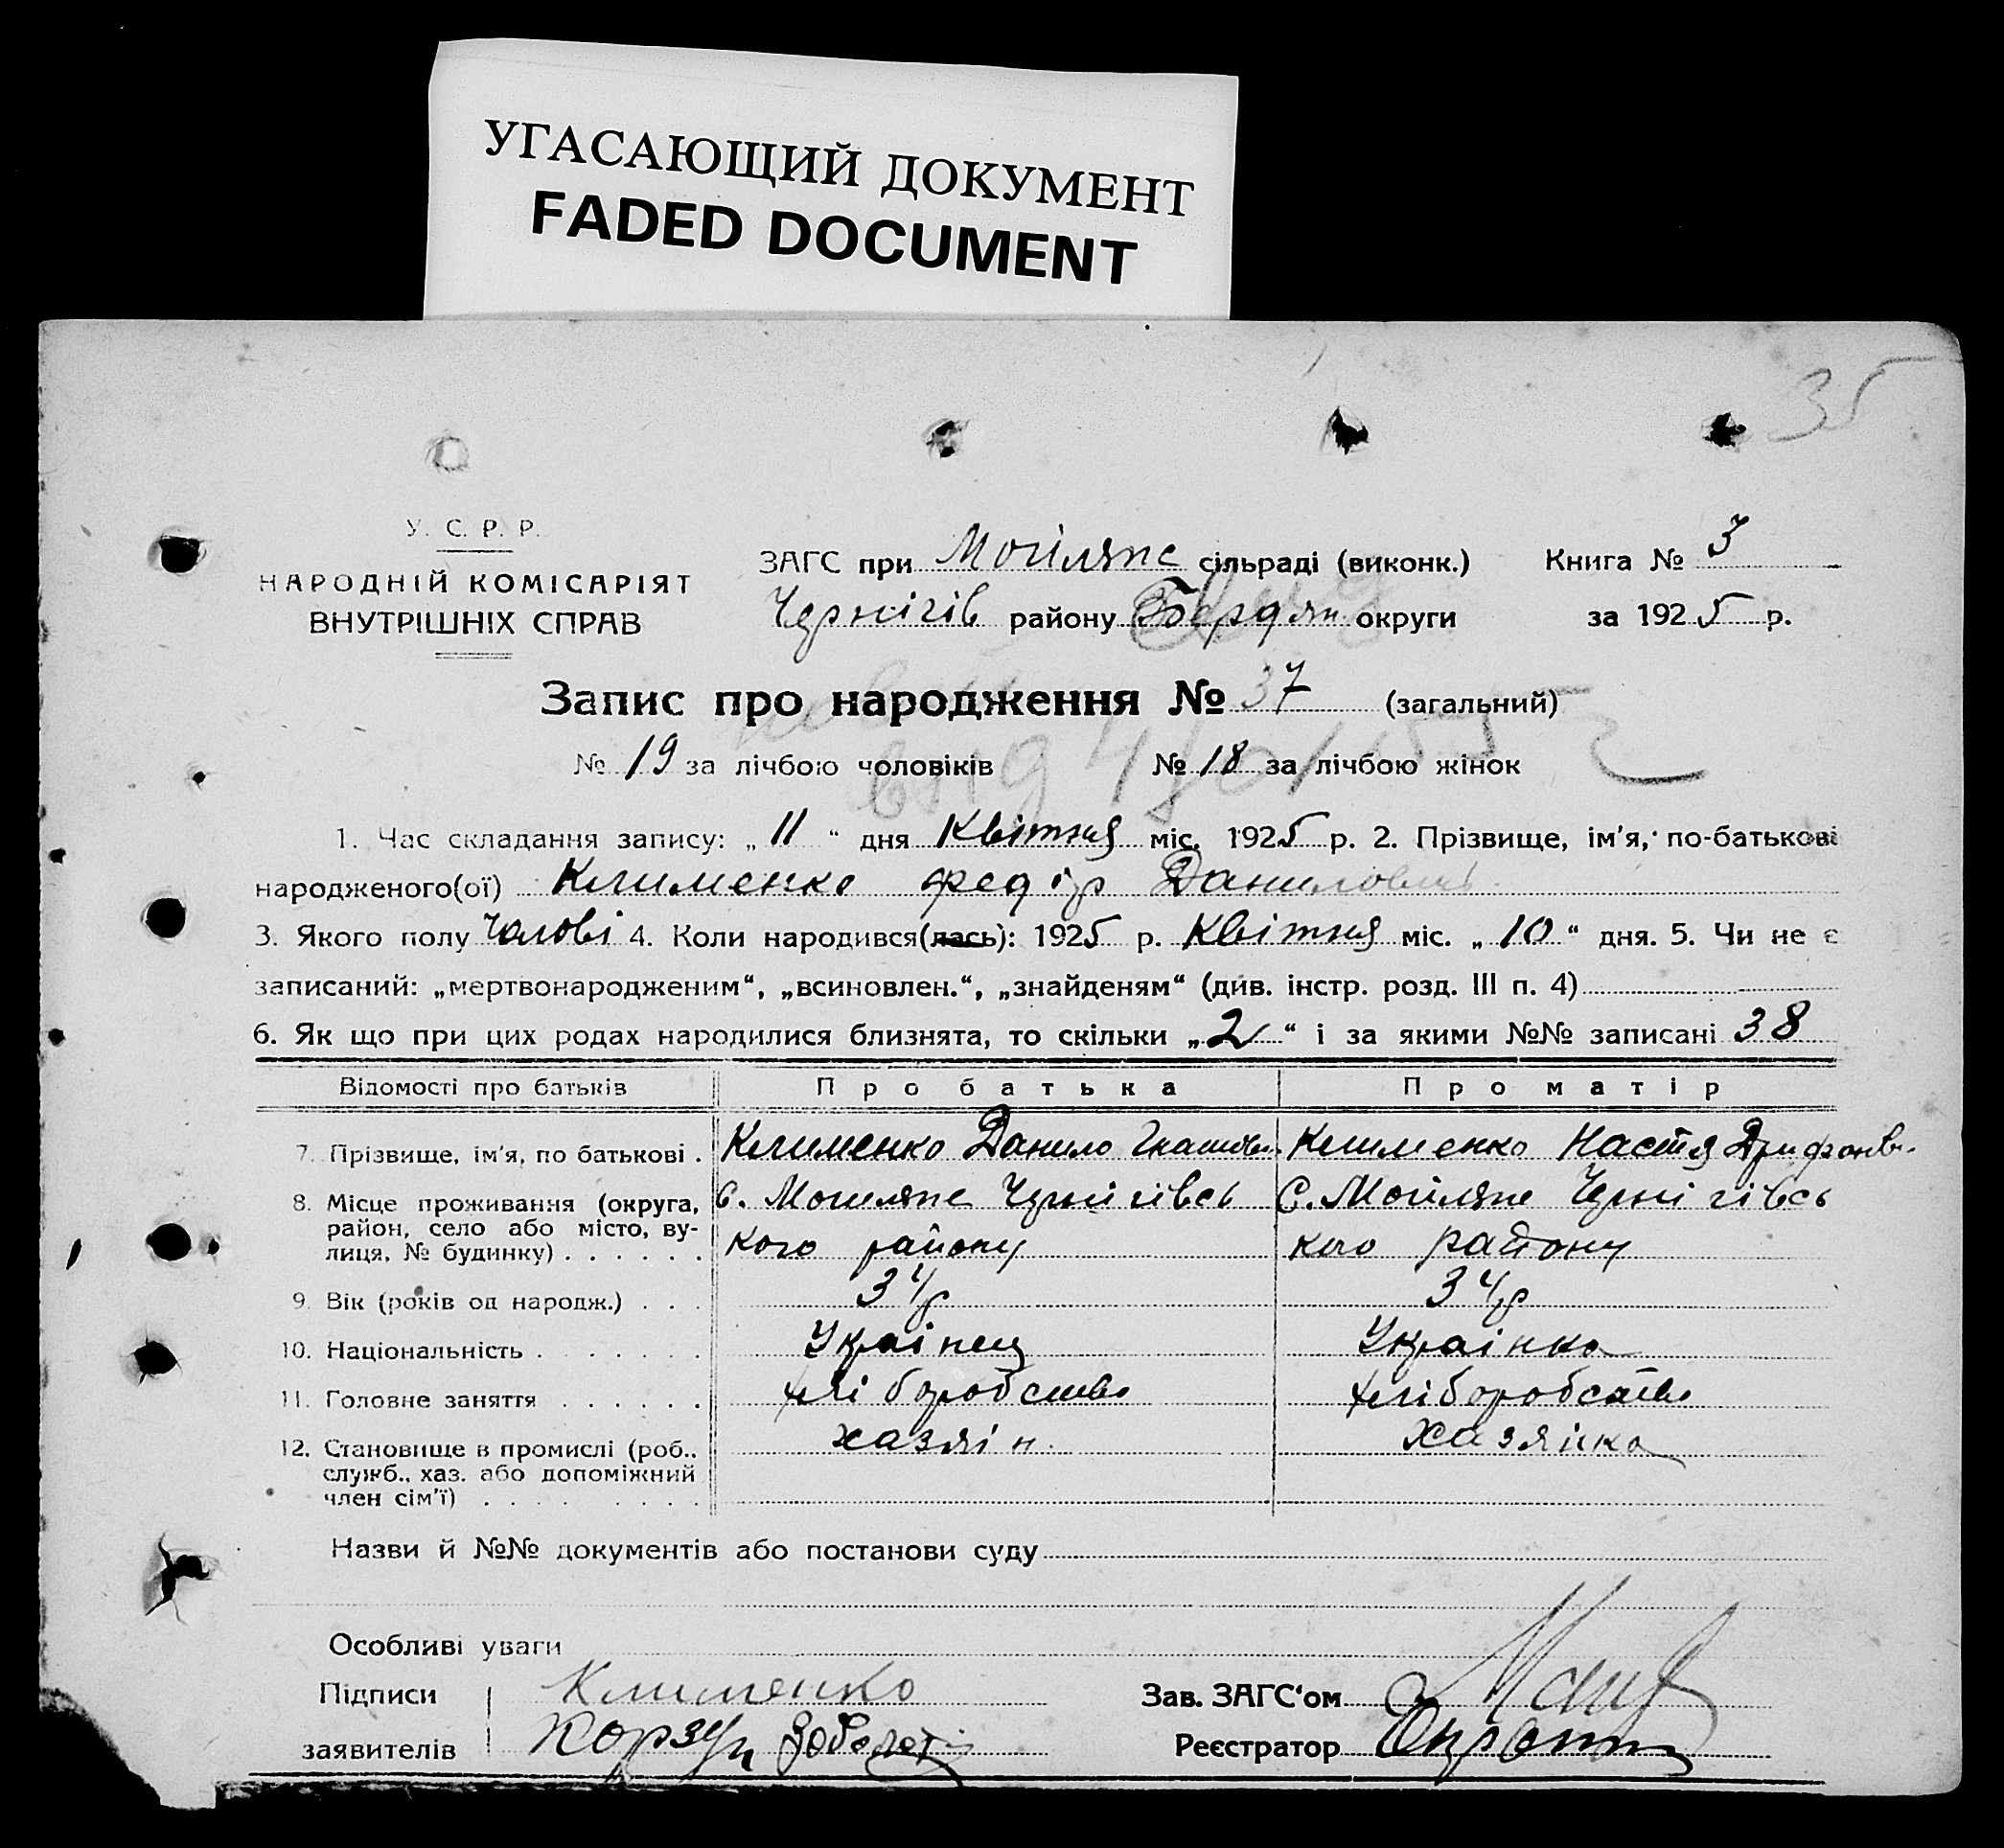 УГАСАЮЩИЙ ДОКУМЕНТ
FADED DOCUMENT
35
У. С. Р. Р.
НАРОДНІЙ КОМІСАРІЯТ
ВНУТРІШНІХ СПРАВ
ЗАГС при Могиляне сільраді (виконк.) Книга № 3
Чернігів району Бердян округи за 1925 р.
Запис про народження № 37 (загальний)
№ 19 за лічбою чоловіків № 18 за лічбою жінок
1. Час складання запису: „ 11 “ дня Квітня міс. 1925 р. 2. Прізвище, ім'я, по-батькові
народженого(ої) Клименко Федір Данилович
3. Якого полу Чолові 4. Коли народився(лась): 1925 р. Квітня міс. „ 10 “ дня. 5. Чи не є
записаний: „мертвонародженим“, „всиновлен.“, „знайденям“ (див. інстр. розд. III п. 4)
6. Як що при цих родах народилися близнята, то скільки „ 2 “ і за якими №№ записані 38
Відомості про батьків Про батька Про матір
7. Прізвище, ім'я, по батькові . Клименко Данило Клименко Настя
8. Місце проживання (округа, район, село або місто, вулиця, № будинку) . . . . . . с. Могиляне Чернігівсь кого району С. Могиляне Чернігівсь кого району
9. Вік (років од народж.) . . . 34 р 34 р
10. Національність . . . . . . . Українец Українка
11. Головне заняття . . . . . . хліборобство хліборобство
12. Становище в промислі (роб., служб., хаз. або допоміжний член сім'ї) . . . . . . . . . хазяін Хазяйка
Назви й №№ документів або постанови суду
Особливі уваги
Підписи Клименко Зав. ЗАГС'ом
заявителів Корзун Реєстратор